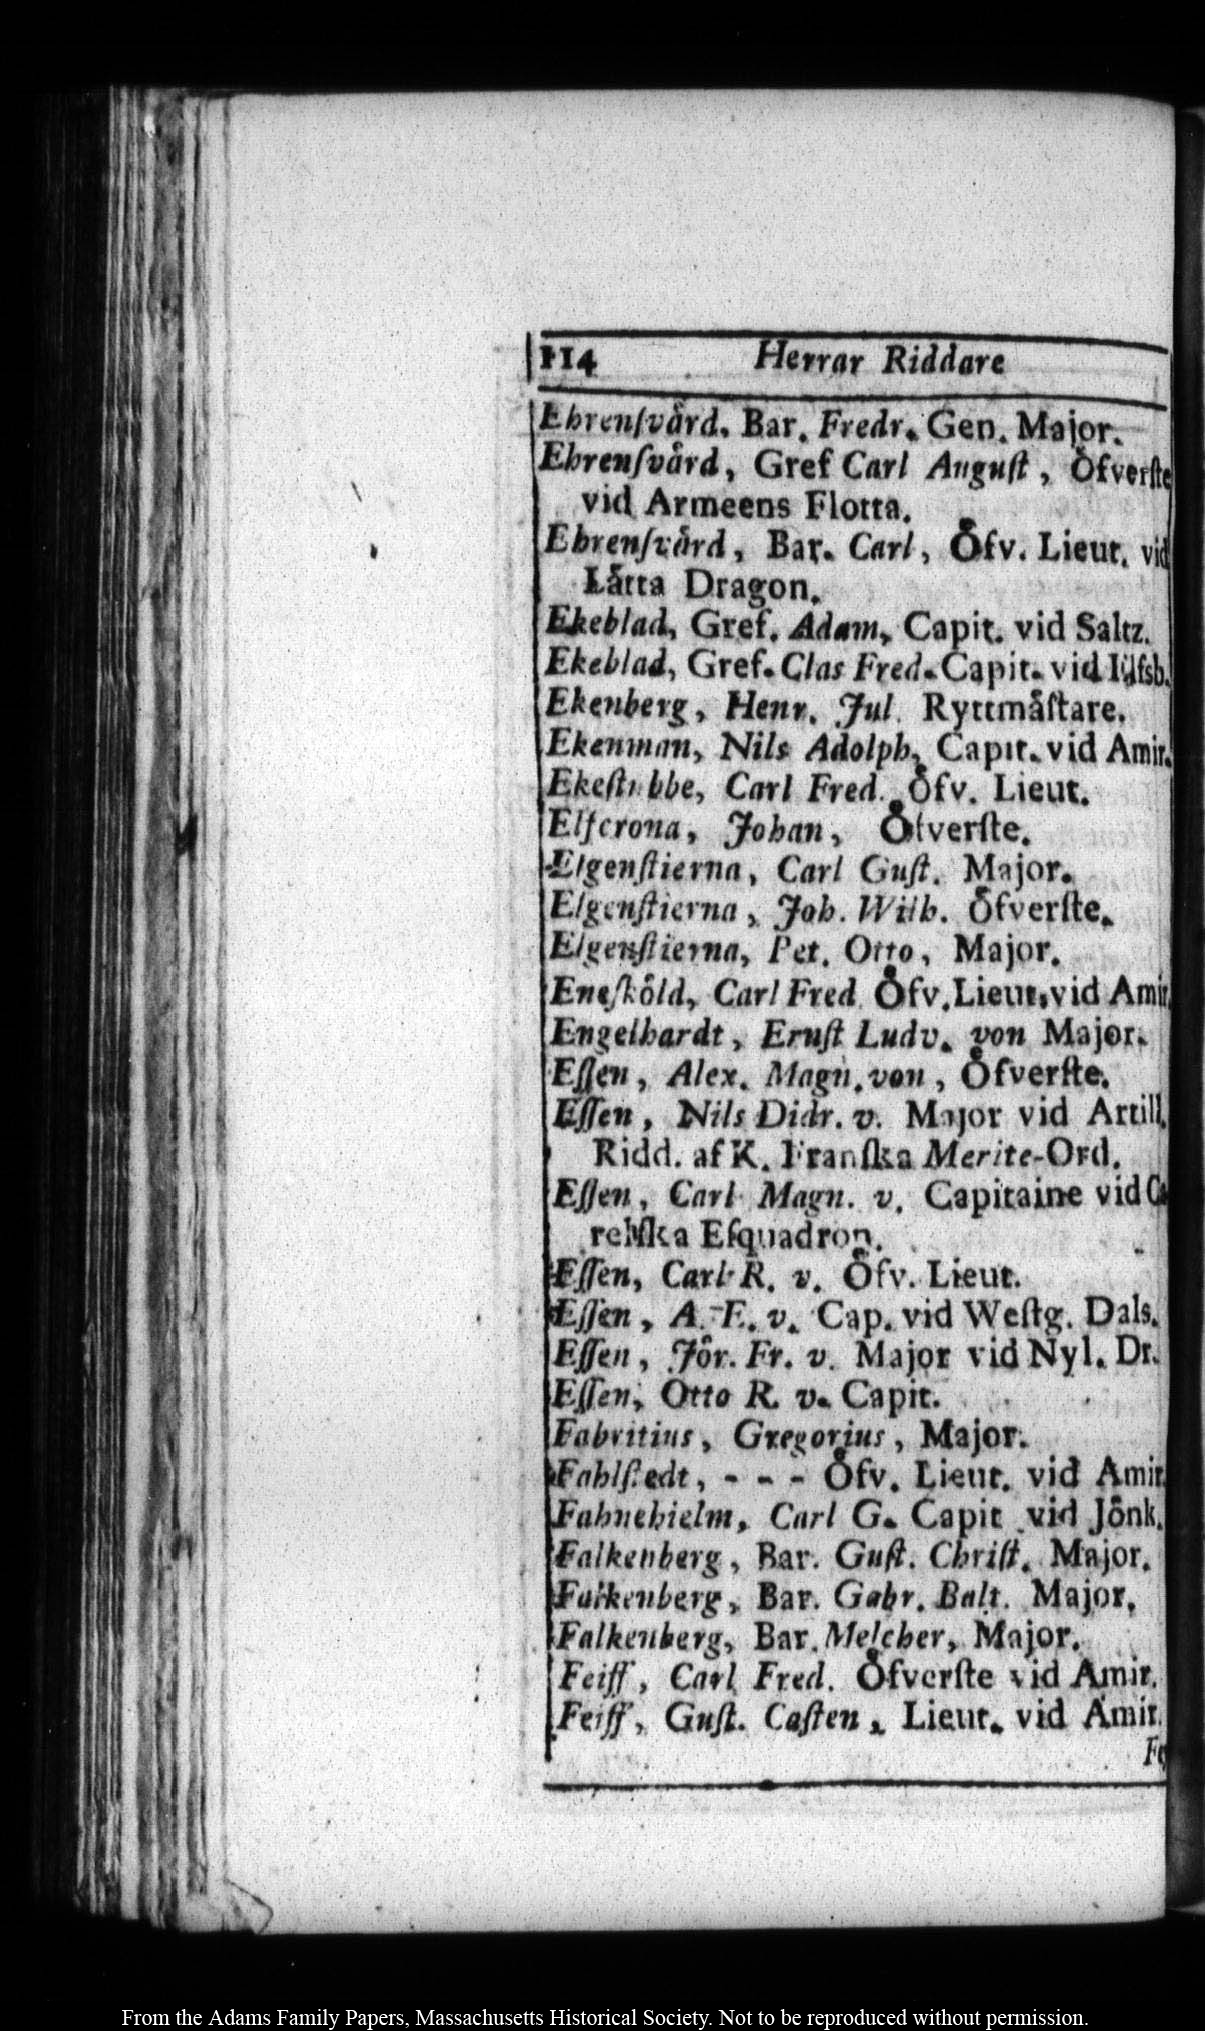 114 Herrar Riddare
Ehrenſvård, Bar. Fredr. Gen. Major.
Ehrenſvård, Gref Carl Auguſt, Öfverſte
vid Armeens Flotta.
Ehrenſvård, Bar. Carl, Öfv. Lieut. vid
Låtta Dragon.
Ekeblad, Gref. Adam, Capit. vid Saltz.
Ekeblad, Gref. Clas Fred. Capit. vid
Ekenberg, Henr. Jul. Ryttmåſtare.
Ekenman, Nils Adolph, Capit. vid Amir.
Ekeſtubbe, Carl Fred. Öfv. Lieut.
Elfcrona, Johan, Öfverſte.
Elgenſtierna, Carl Guſt. Major.
Elgenſtierna, Joh. Wilh. Öfverſte.
Elgenſtierna, Pet. Otto, Major.
Eneſköld, Carl Fred. Öfv. Lieut. vid Amir.
Engelhardt, Ernſt Ludv. von Major.
Eſſen, Alex. Magn. von, Öfverſte.
Eſſen, Nils Didr. v. Major vid Artill.
Ridd. af K. Franſka Merite-Ord.
Eſſen, Carl Magn. v. Capitaine vid Ca
relſka Eſquadron.
Eſſen, Carl R. v. Öfv. Lieut.
Eſſen, A. F. v. Cap. vid Weſtg. Dals.
Eſſen, Jör. Fr. v. Major vid Nyl. Dr.
Eſſen, Otto R. v. Capit.
Fabritius, Gregorius, Major.
Fahlſtedt, - - - Öfv. Lieut. vid Amir.
Fahnehielm, Carl G. Capit vid Jönk.
Falkenberg, Bar. Guſt. Chriſt. Major.
Falkenberg, Bar. Gabr. Balt. Major.
Falkenberg, Bar. Melcher, Major.
Feiff, Carl Fred. Öfverſte vid Amir.
Feiff, Guſt. Caſten, Lieut. vid Amir.
From the Adams Family Papers, Massachusetts Historical Society. Not to be reproduced without permission.